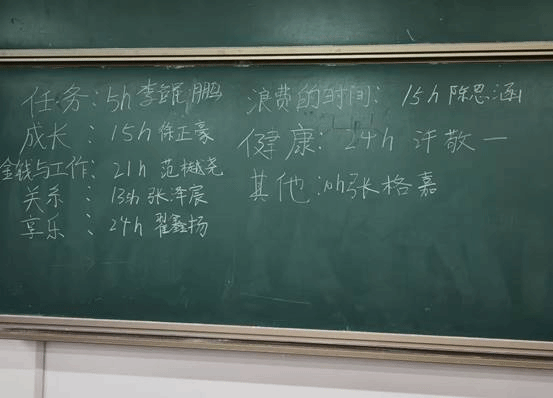 任务：5h 李 鹏
成长：15h 徐正豪
金钱与工作：21h 范樾尧
关系：13h 张泽宸
享乐：24h 翟鑫扬
浪费的时间：15h 陈思涵
健康：24h 许敬一
其他：10h 张格嘉